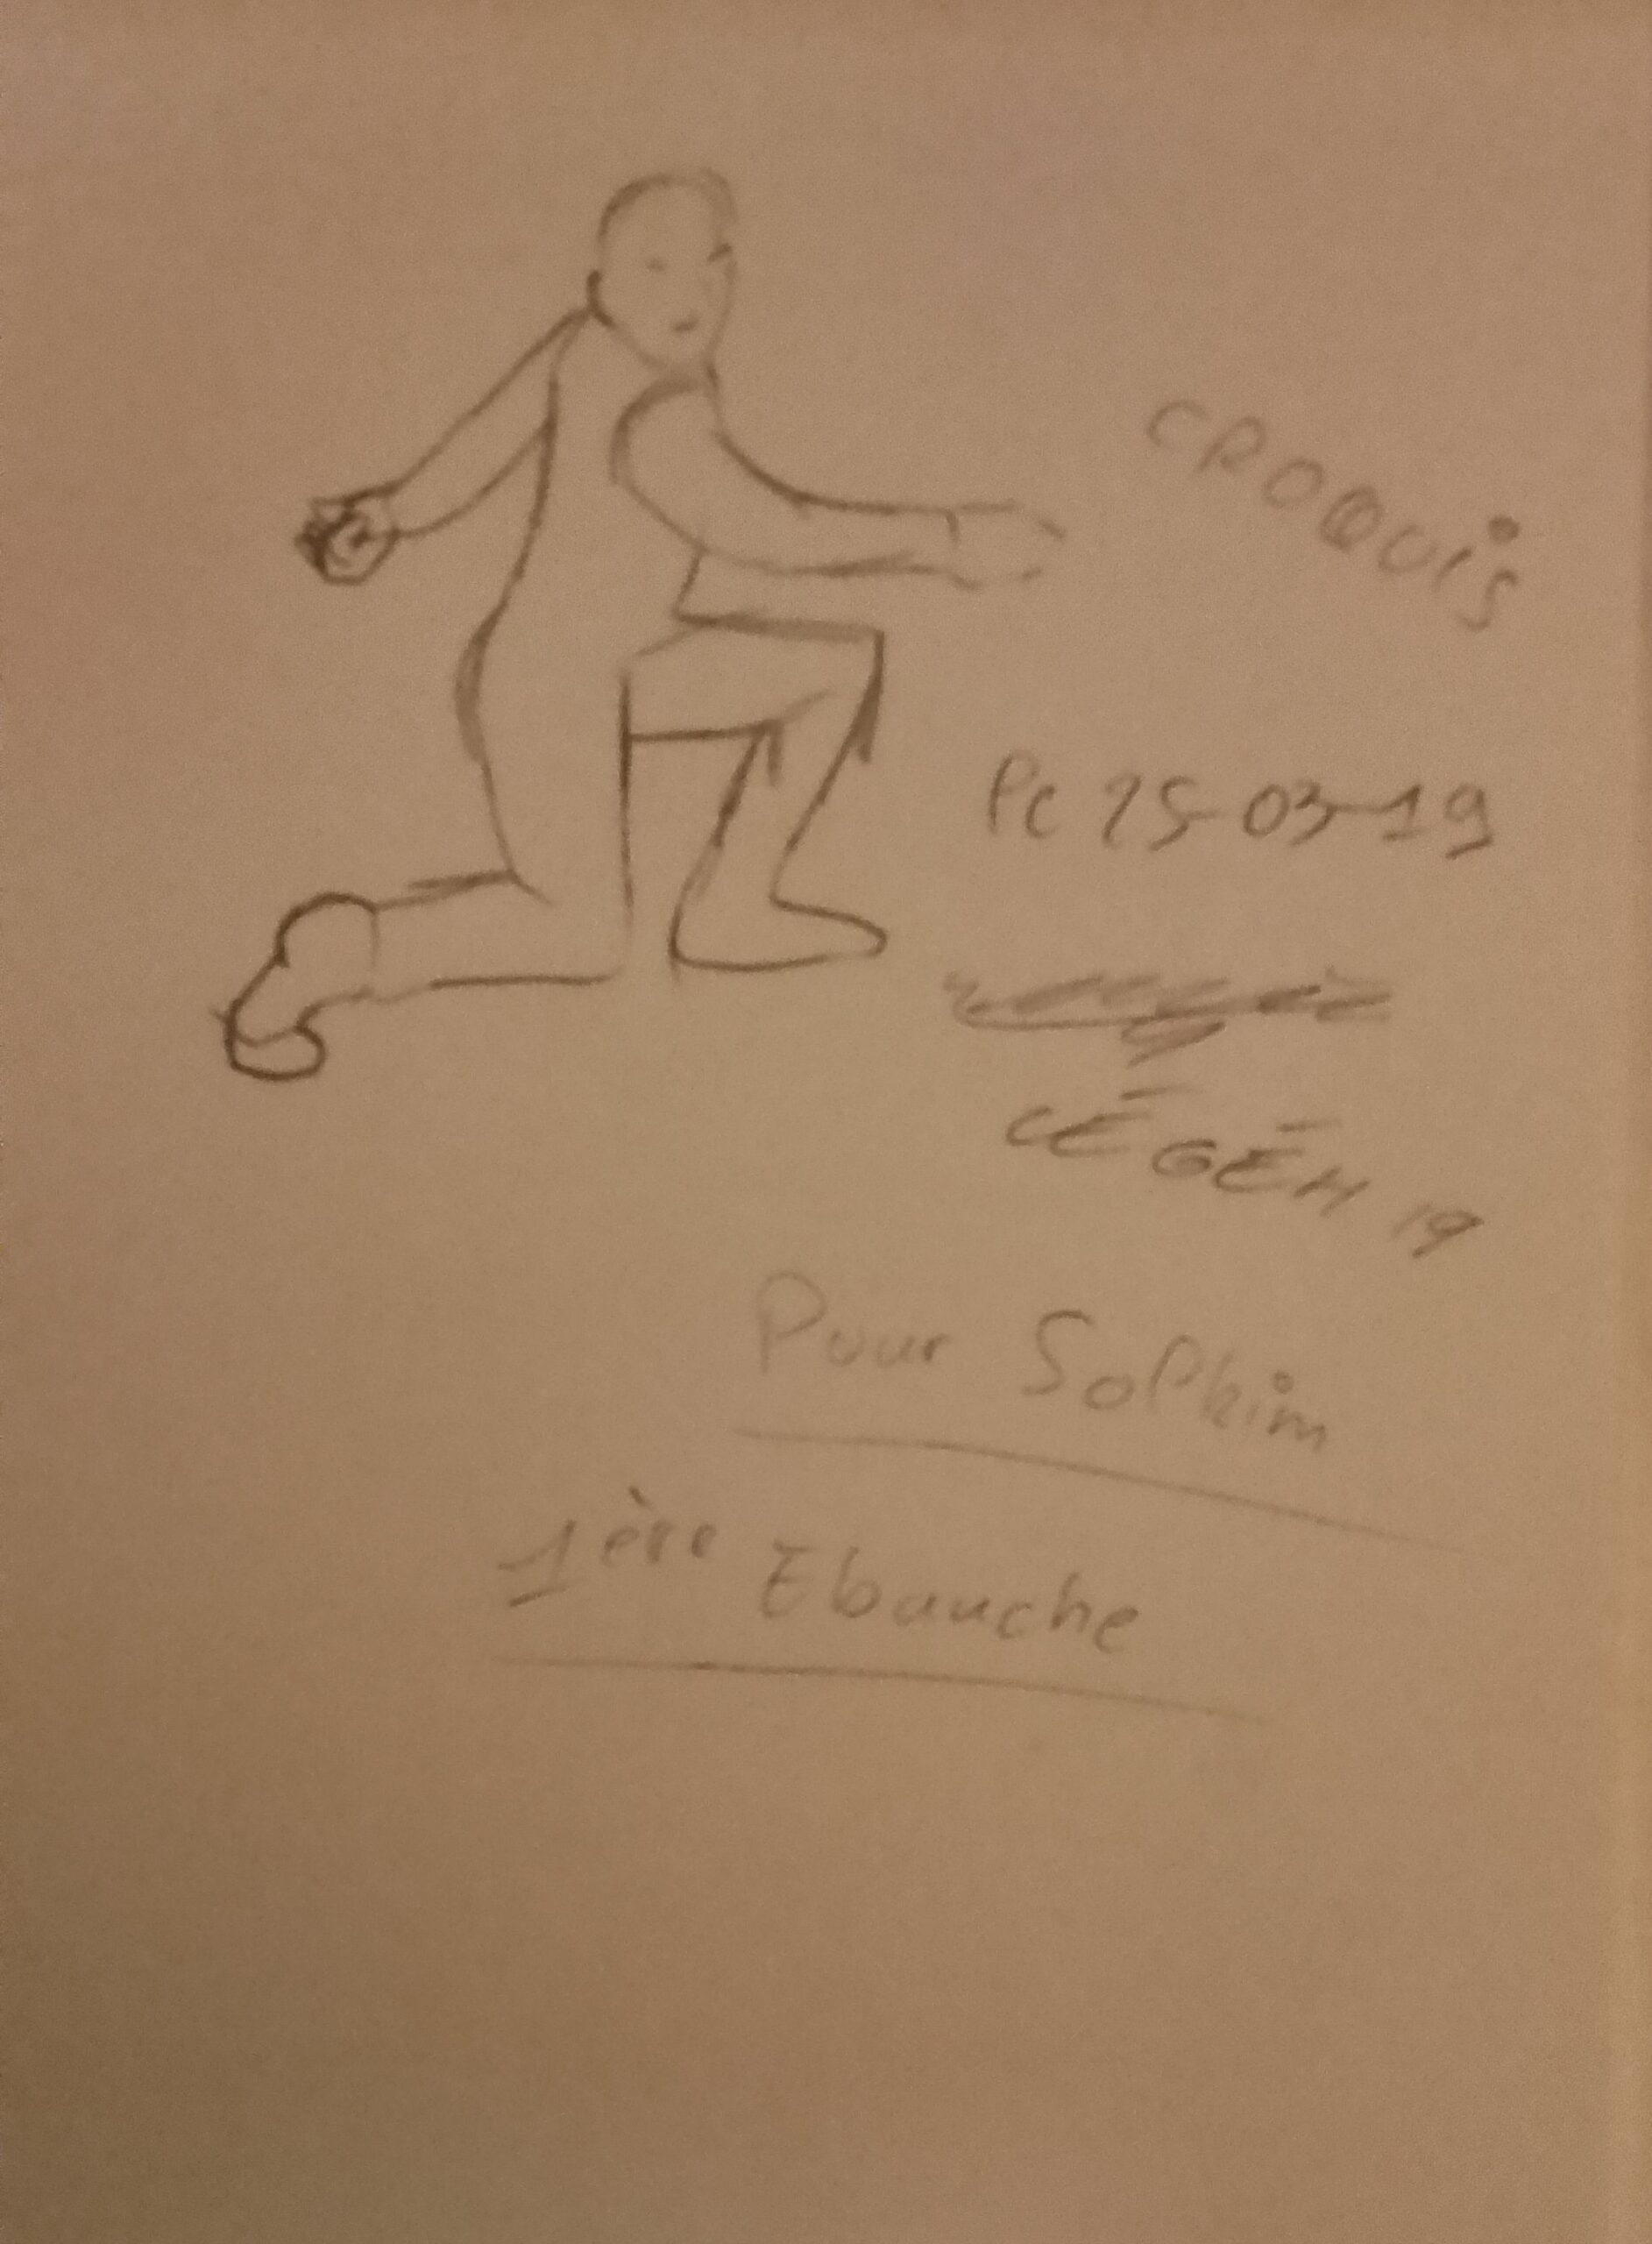 CROQUiS
Pc 25-03-19
CÉGÉM 19
Pour Solkim
1ère Ebauche